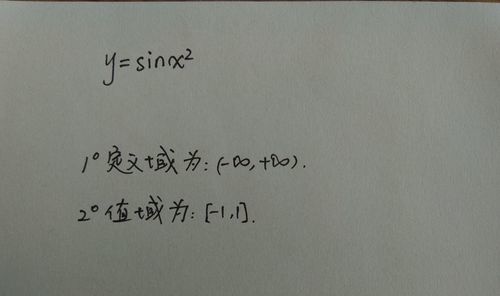 y=sinx²
1° 定义域为:(-∞,+∞).
2° 值域为:[-1,1].